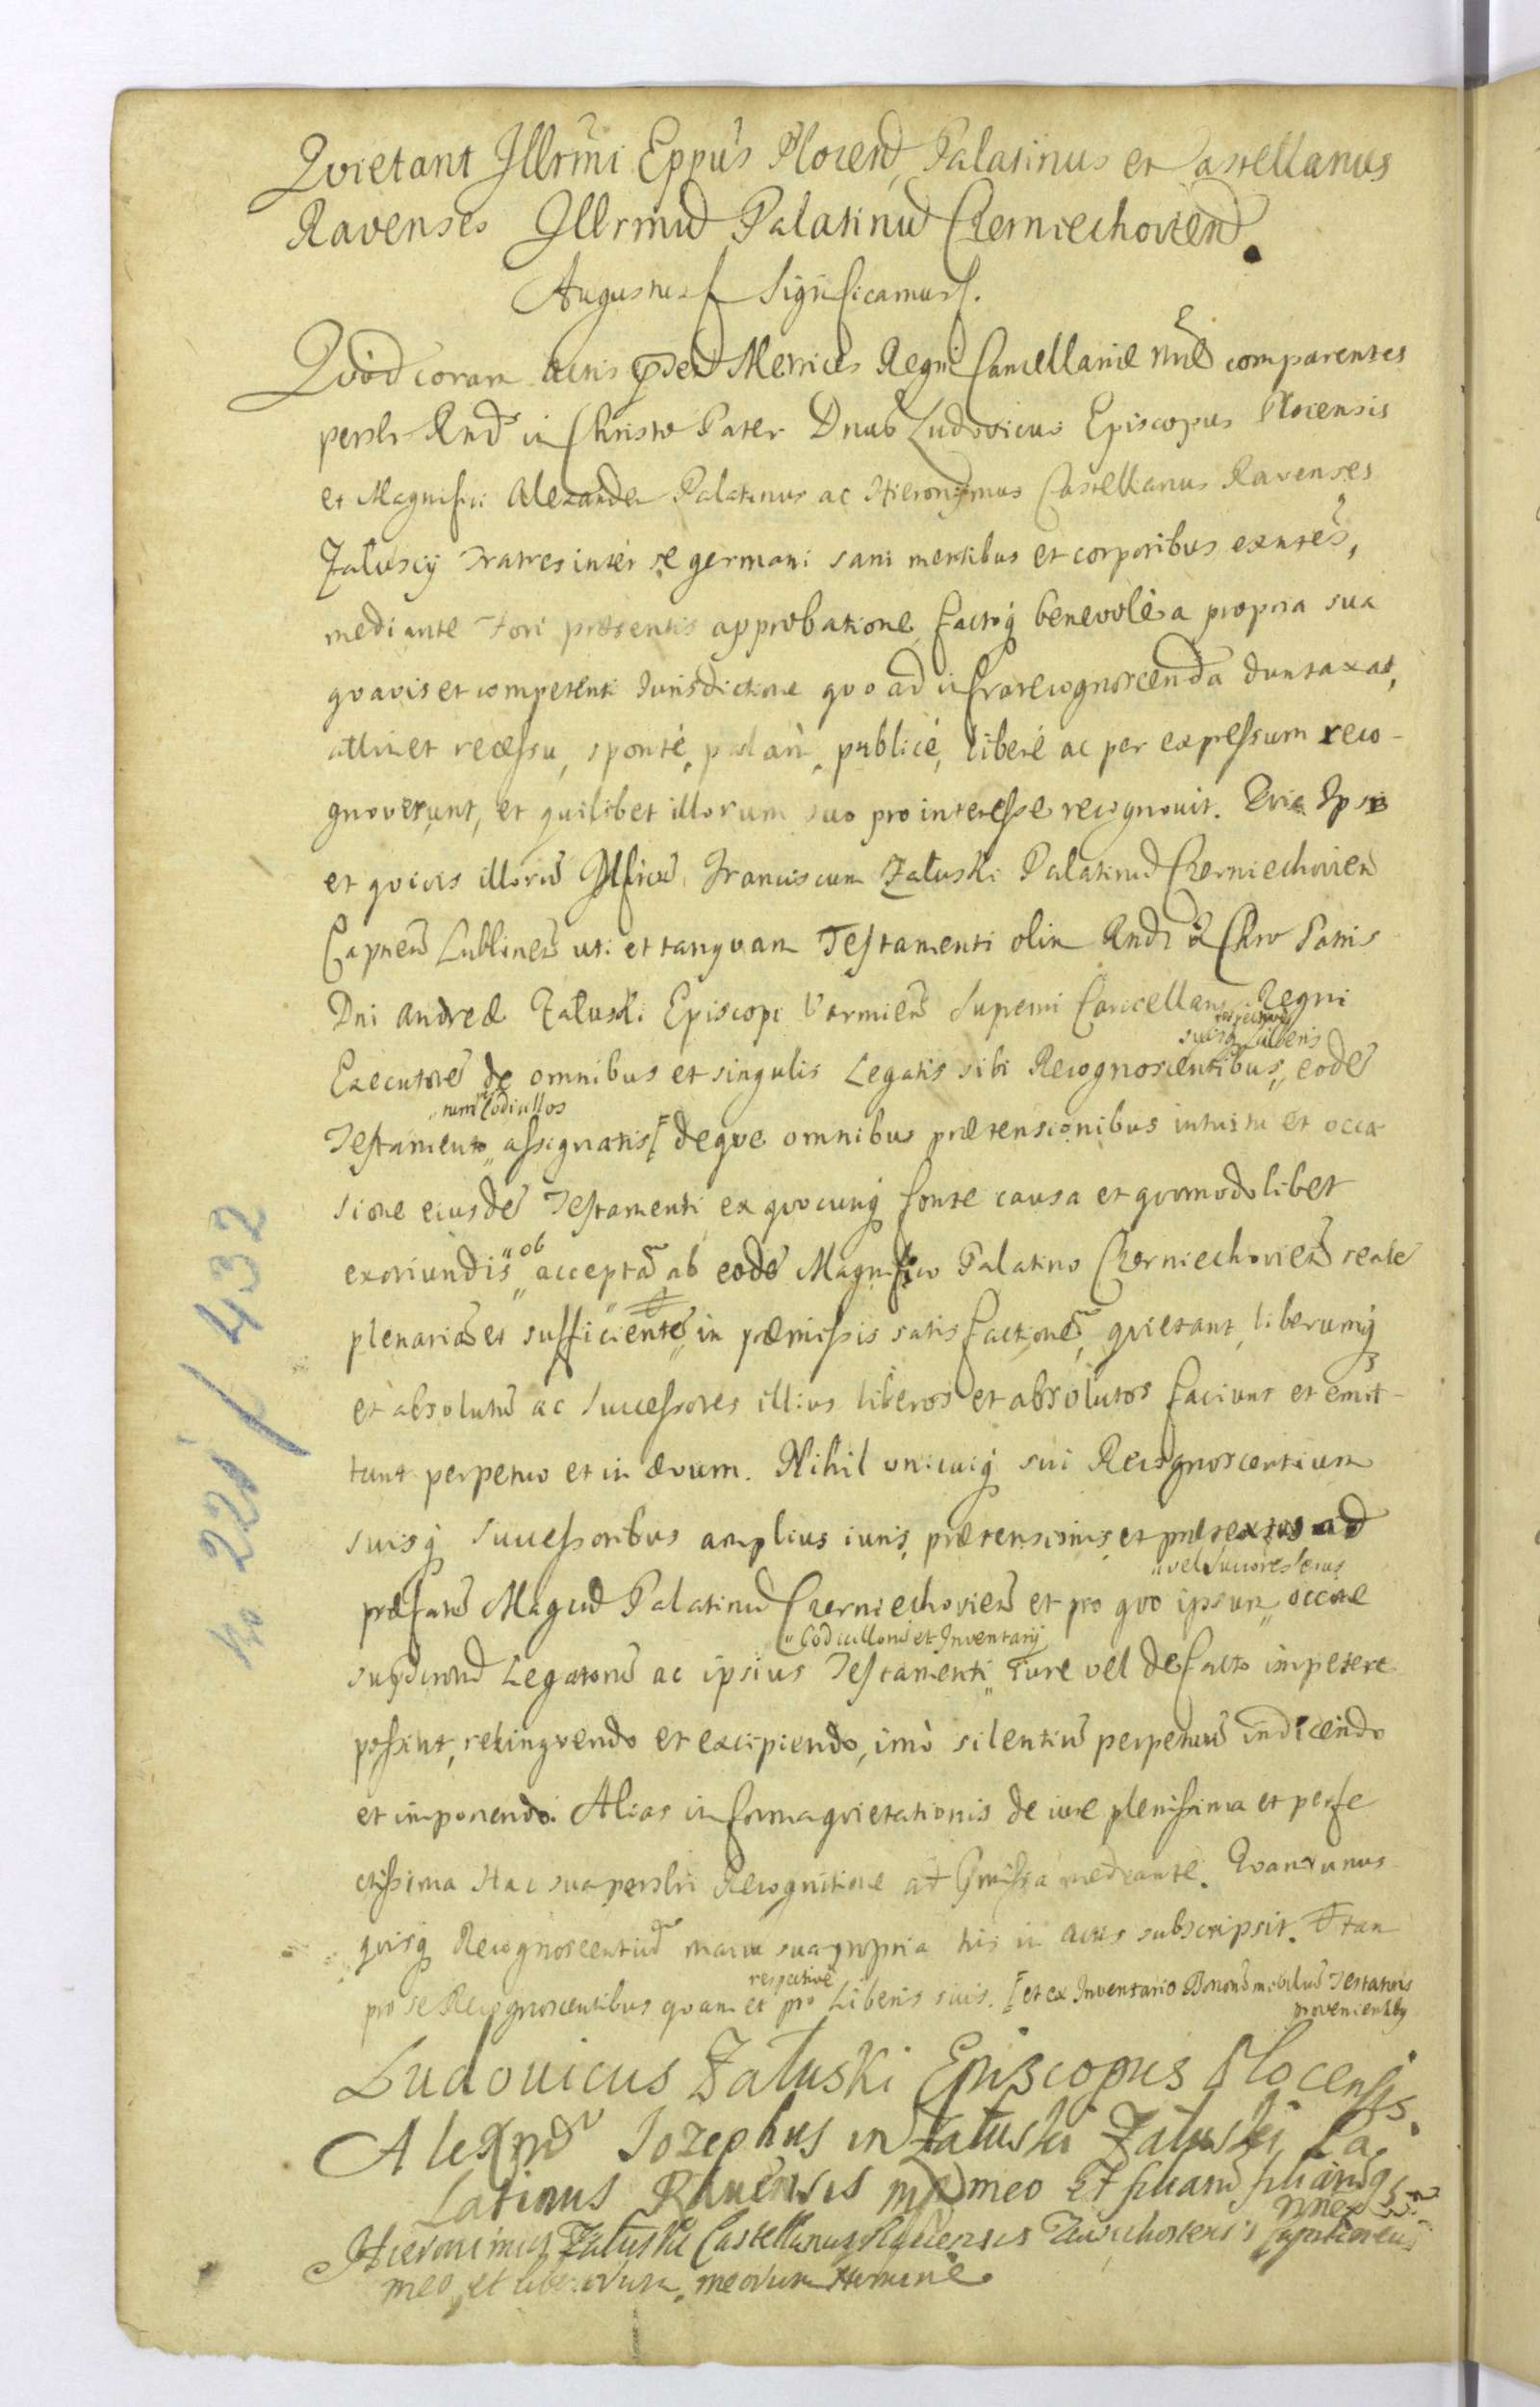 Qvietant Jllrmi Eppus Plocen Palatinus et Castellanus
Ravenses Jllrmu Palatinu Czerniechovien.
Augustus Significamus.
Qvod coram actis Metrices Regni Cancellariæ comparentes
persltr Rnds in Christo Pater Dnus Ludovicus Episcopus Plocensis
et Magnifici Alexander Palatinus ac Hieronymus Castellanus Ravenses
Załuscÿ Fratres inter se germani sani mentibus et corporibus exntes,
mediante Fori præsentis approbatione factoq benevolè a propria sua
qvavis et competenti Jurisdictione qvo ad infrarecognoscenda duntaxat,
attinet recessu, spontè, palam, publicè, liberè ac per expressum reco-
gnoverunt, et quilibet illorum suo pro interesse recognovit. Qvia Ipsi
et qvivis illoru Mficu Franciscum Załuski Palatinu Czerniechovien
Capneu Lublinen uti et tanqvam Testamenti olim Rndi in Chro Patris
Dni Andreæ Załuski Episcopi Varmien Supremi Cancellarij Regni
respective
suisq Liberis
Executore de omnibus et singulis Legatis sibi Recognoscentibus,, eode
"tum Codicillos
Testamento,, assignatis [ deqve omnibus prætensionibus intuitu et occa
sione eiusde Testamenti ex qvocunq fonte causa et qvomodolibet
"ob
exoriundis,, accepta ab eode Magnifico Palatino Czerniechovien reale
plenaria et sufficiente,, in præmissis satisfactione, qvietant, liberumq
et absolutu ac Successores illius liberos et absolutos faciunt et emit-
tunt perpetuo et in ævum. Nihil unicuiq sui Recognoscentium
suisq Successoribus amplius iuris, prætensionis, et prætextus ad
"vel Succores eius
præfatu Magcu Palatinu Czerniechovien et pro qvo ipsum,, occone
"Codicilloru et Inventarij
Legatoru ac ipsius Testamenti,, iure vel de facto impetere
possint, relinqvendo et excipiendo, imò silentiu perpetuu indicendo
et imponendo. Alias in forma qvietationis de iure plenissima et perfe
ctissima Hac sua persltri Recognitione ad Pmissa mediante. Qvam unus
qvisq Recognoscentiu manu sua propria his in Actis subscripsit. Tam
respective
pro se Recognoscentibus qvam et pro Liberis suis. [ et ex Inventario Bonoru mobiliu Testatoris
provenientibq
Ludovicus Załuski Episcopus Plocensis
Alexndr Jozephus in Załuski Załuski Pa,
Latinus Rauensis mp meo Et filiaru filiarumq
nne
Hieronimus Załuski Castellanus Rauensis Zawichostens s Capitaneus
meo, et liberorum, meorum Nomine.
No 221 / 432